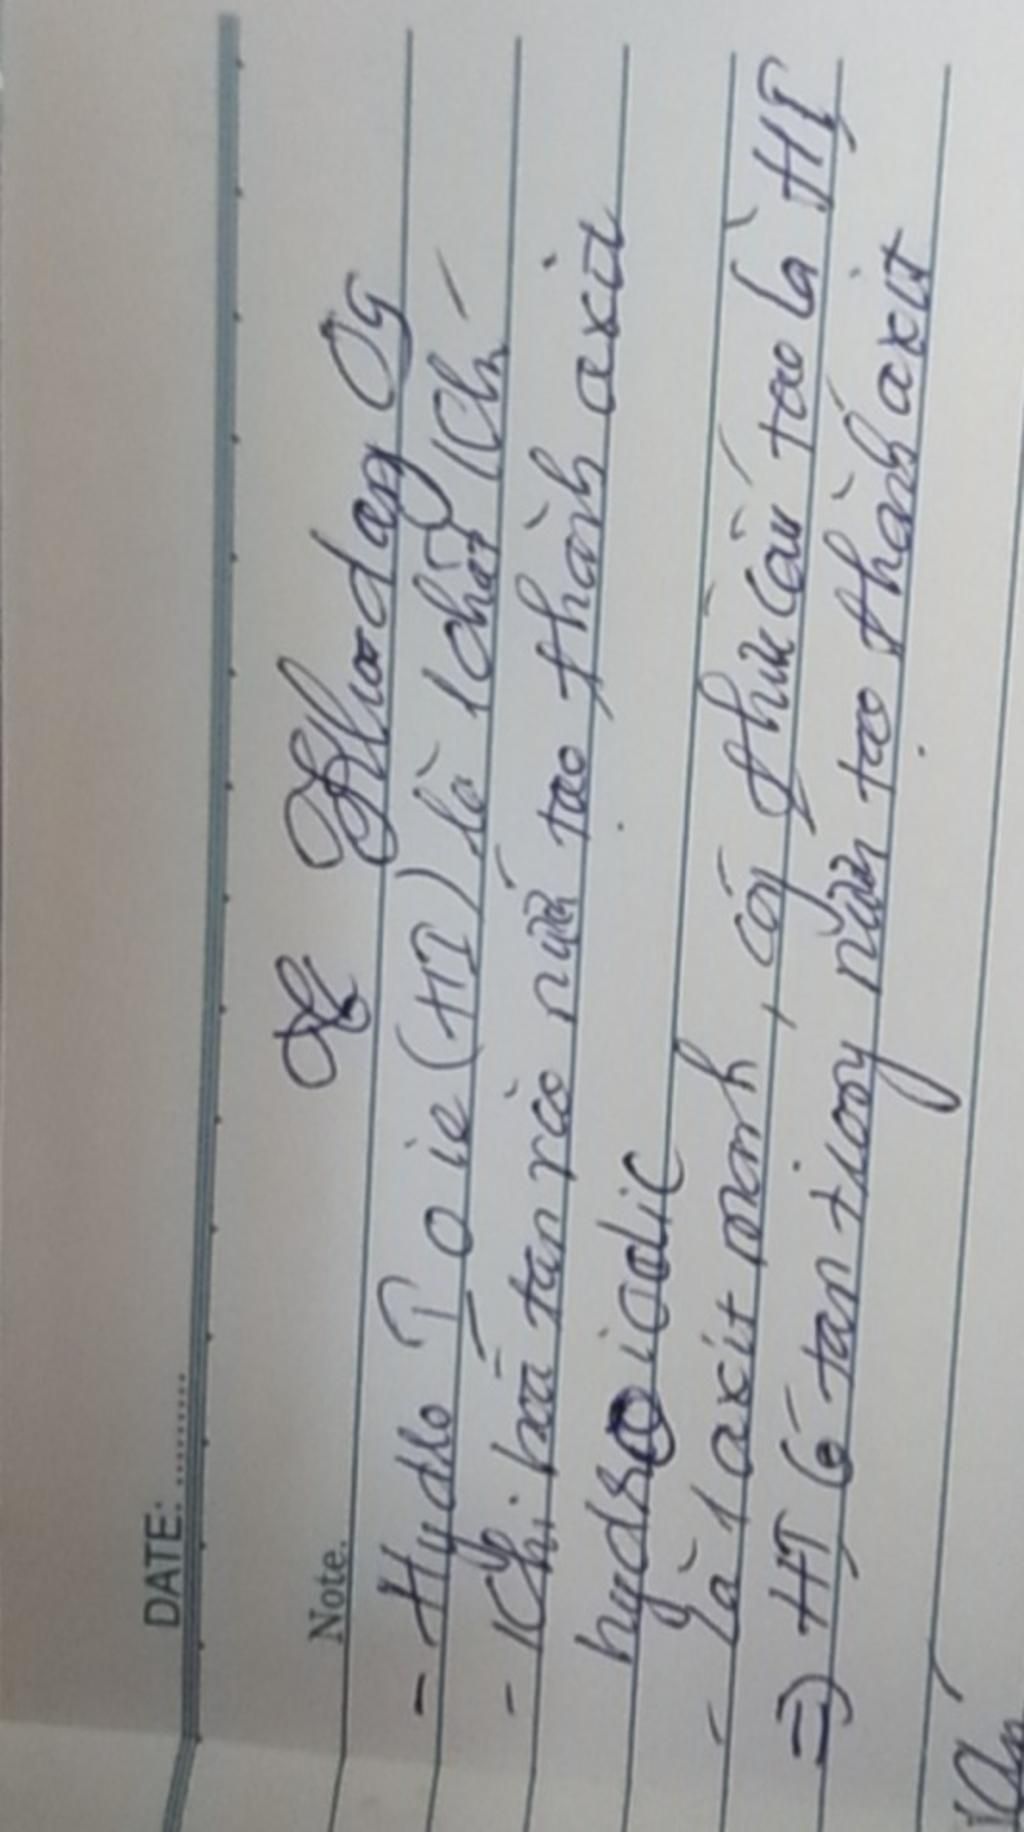 DATE: ..........
Note.
- Hydro I o ie (HI) là 1 chất Khí
- Khi hoà tan vào nước tạo thành axit
hydroiodic
- Là 1 axit mạnh, có thức cấu tạo là HI
=) HI có tan trong nước tạo thành axit